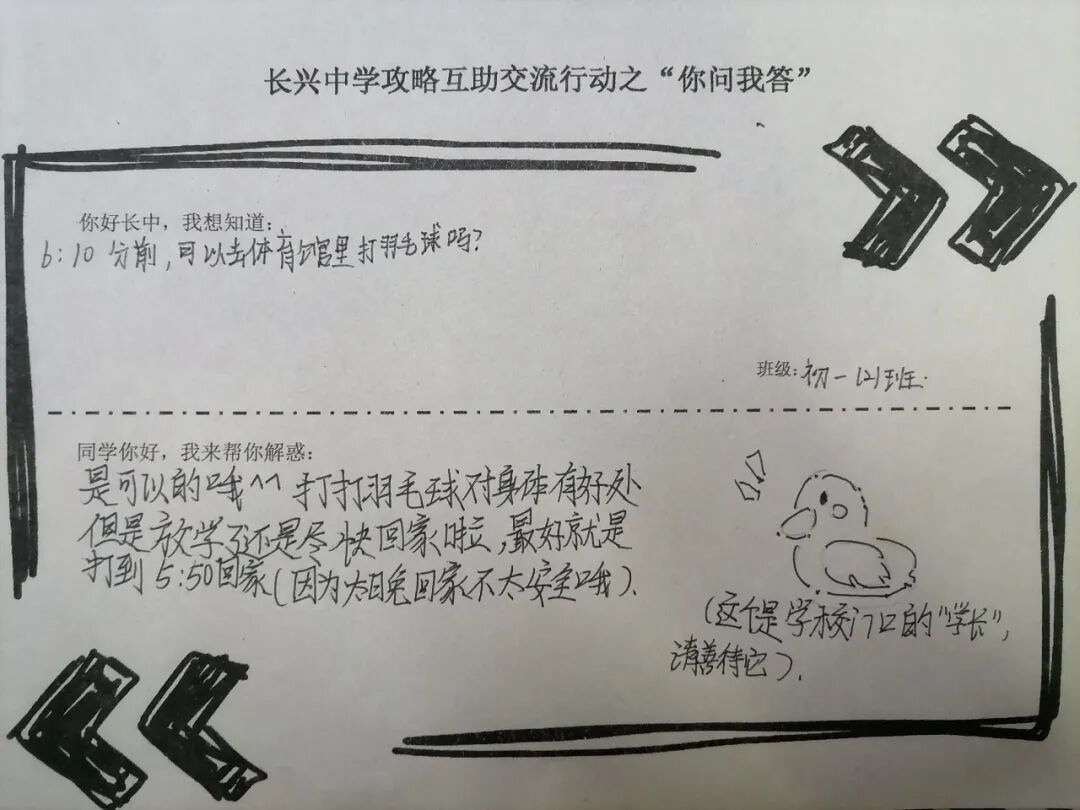 长兴中学攻略互助交流行动之“你问我答”
你好长中，我想知道:
6:10 分前,可以去体育馆里打羽毛球吗?
班级:初一(2)班.
同学你好，我来帮你解惑:
是可以的哦^^ 打打羽毛球对身体有好处
但是放学了还是尽快回家啦,最好就是
打到5:50回家(因为太晚回家不太安全哦).
(这个是学校门口的“学长”,
请善待它).